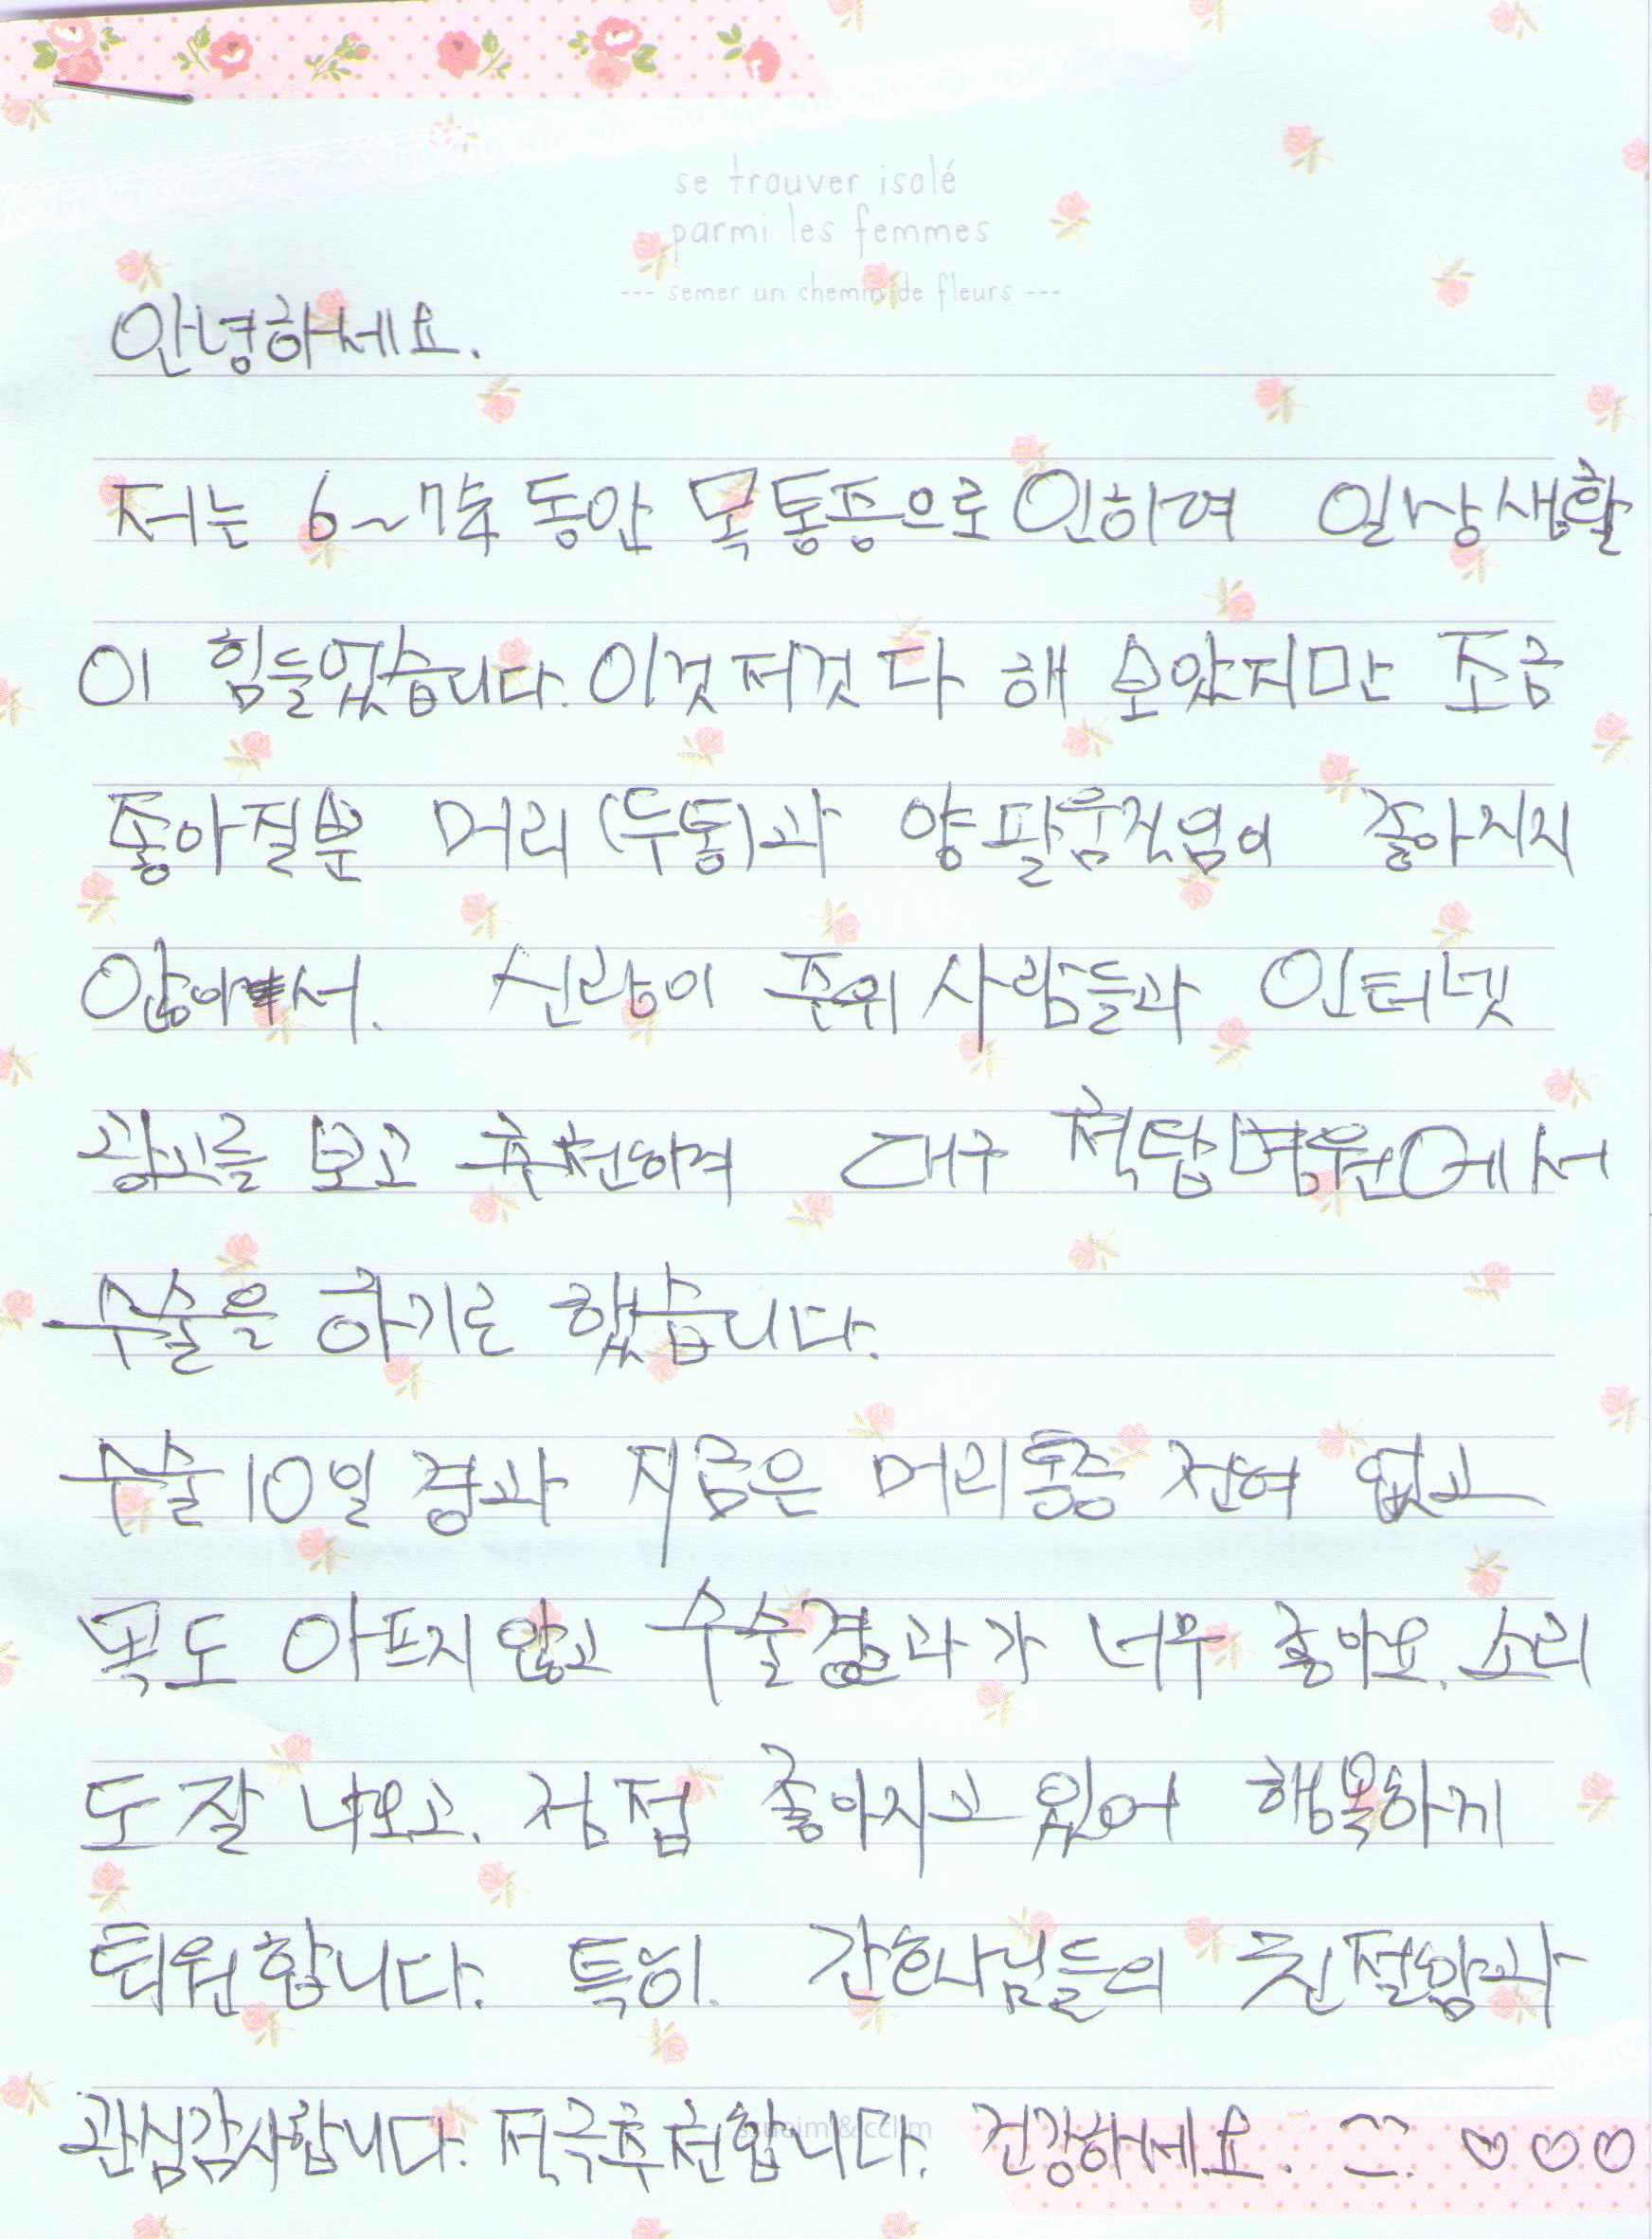 se trouver isolé
parmi les femmes
--- semer un chemin de fleurs ---
안녕하세요.
저는 6~7주 동안 목통증으로 인하여 일상생활
이 힘들었습니다. 이것저것 다 해 보았지만 조금
좋아질뿐 머리(두통)과 양팔움직임이 좋아지지
않아서. 신랑이 주위 사람들과 인터넷
광고를 보고 추천하여 대구 척탑병원에서
수술을 하기로 했습니다.
수술 10일 경과 지금은 머리통증 전혀 없고
목도 아프지 않고 수술경과가 너무 좋아요. 소리
도 잘 나오고. 점점 좋아지고 있어 행복하게
퇴원합니다. 특히. 간호사님들의 친절함과
관심감사합니다. 적극추천합니다. 건강하세요. ^^. ♡♡♡